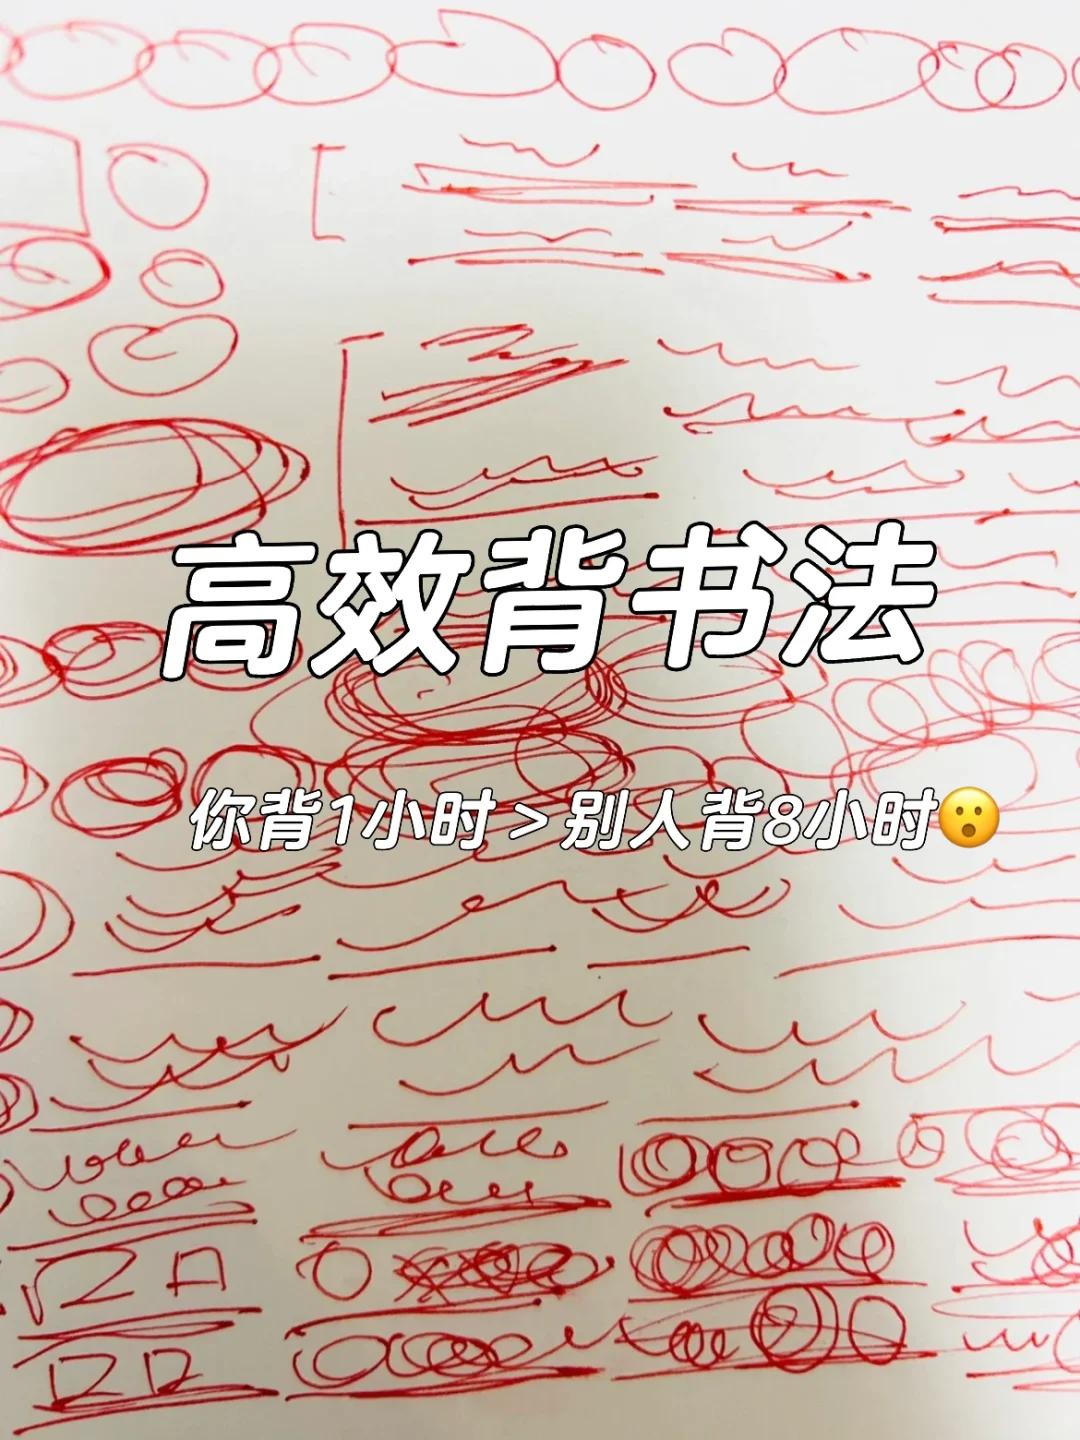 高效背书法
你背1小时>别人背8小时😮